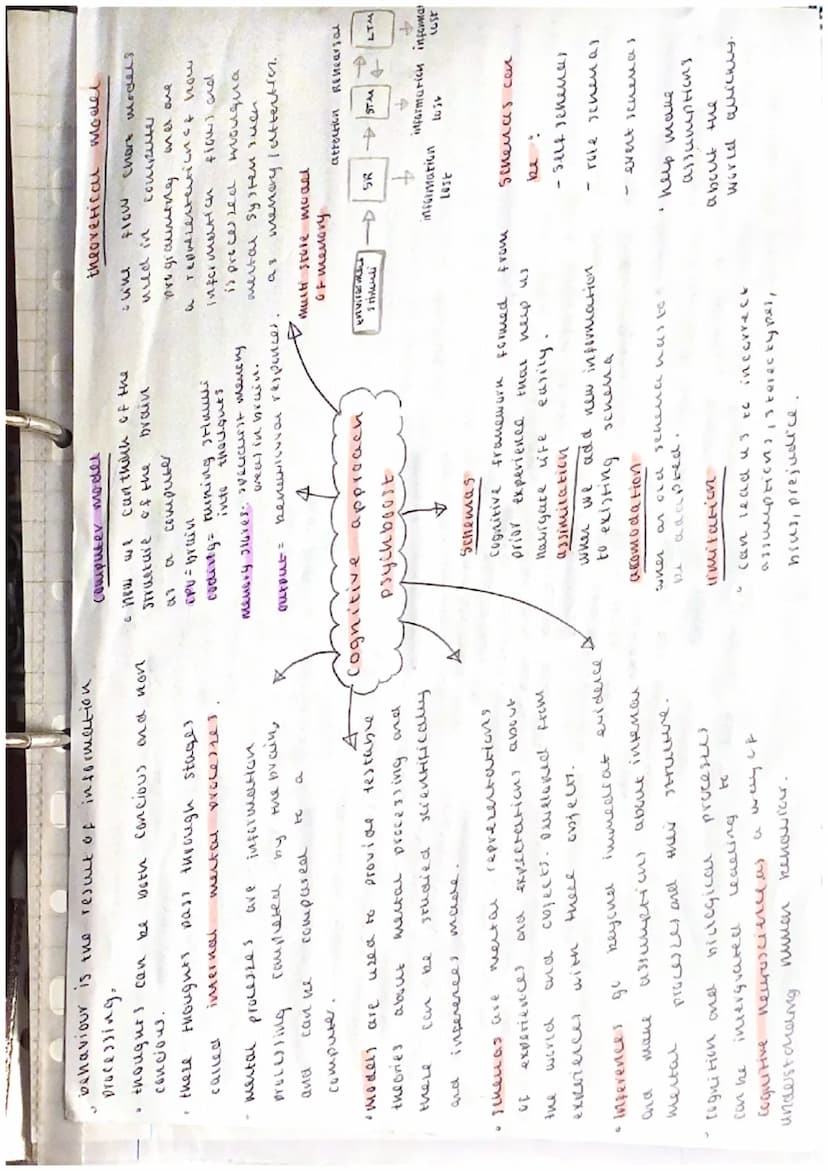 behaviour is the result of information
processing.
thoughts can be both concious and non
concious.
these thoughts pass through stages
called internal mental processes.
mental processes are information
processing completed by the brain,
and can be compared to a
computer.
models are used to provide testable
theories about mental processing and
these can be studied scientifically
and inferences made.
schemas are mental representations
of experiences and expectations about
the world and objects. Developed from
experiences with these objects.
Inferences go beyond immediate evidence
and make assumptions about internal
mental processes and their structure.
cognition and biological processes
can be intergrated leading to
cognitive neuroscience as a way of
understanding human behaviour.
cognitive approach
psychboost
computer model
how we can think of the
structure of the brain
as a computer
CPU = brain
coding = turning stimuli
into thoughts
memory stores:
memory
areas in brain.
output = behavioural responces.
theoretical model
flow chart models
used in computer
programing and are
a representation of how
information flows and
is processed through a
mental system such
as memory/attention.
multi store model
of memory
attention rehearsal
environment
stimuli
SR
STM
LTM
information
lost
information
lost
information
lost
Schemas
cognitive framework formed from
prior experience that help us
navigate life easily.
assimilation
when we add new information
to existing schema
acomodation
when an old schema has to
be adapted.
limitation
can lead us to incorrect
assumptions, stereotypes,
bias, prejudice.
Schemas can
be:
- self schemas
- role schemas
- event schemas
help make
assumptions
about the
world quickly.